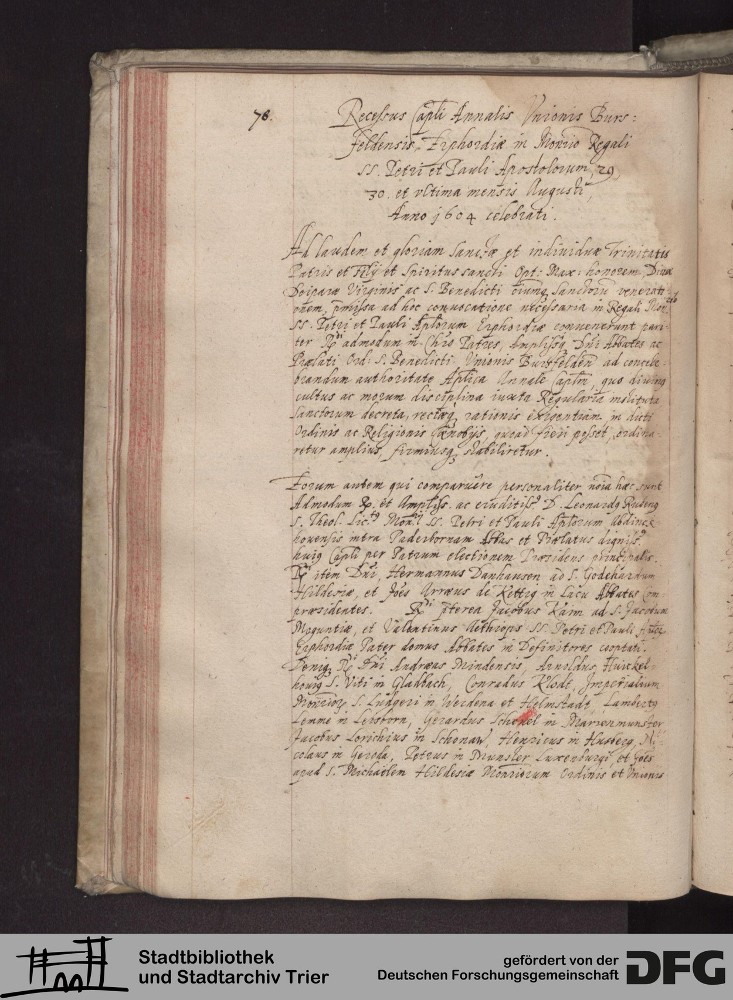 78.
Recessus Capli Annalis Unionis Burs:
feldensis, Erphordiæ in Monrio Regali
SS. Petri et Pauli Apostolorum, 29
30. et vltima mensis Augusti
Anno 1604 celebrati.
Ad laudem et gloriam Sanctæ et individuæ Trinitatis
Patris et Filij et Spiritus sancti Opt: Max: honorem Divæ
Deiparæ Virginis ac S. Benedicti oiumq Sanctorū venerati-
onem, pmissa ad hoc convocatione necessaria in Regali Monrio
SS. Petri et Pauli Aplorum Erphordiæ convenerunt pari-
ter Rdi admodum in Chro Patres, Amplissq Dni Abbates ac
Prælati Ord: S. Benedicti Unionis Bursfelden ad concele-
brandum authoritate Aplica Annale Caplm, quo divinq
cultus ac morum disciplina iuxta Regularia instituta
Sanctorum decreta, rectæq rationis exigentiam in dicti
Ordinis ac Religionis Cænobijs, quoad fieri posset, ordina-
retur amplius, firmiusq stabiliretur.
Eorum autem qui comparuêre personaliter noia hæc sunt
Admodum R. et Ampliss. ac eruditissq D. Leonardq Ruben
S. Theol. Lic. Monrii SS. Petri et Pauli Aplorum Abdinck-
hovensis intra Paderbornam Abbas et Prælatus digniss.
huiq Capli per Patrum electionem Præsidens principalis.
Rdi item Dni, Hermannus Danhausen ad S. Godehardum
Hildesiæ, et Joes Arræus de Kettig in Lacu Abbates Con-
præsidentes. Rdi pterea Jacobus Kaim ad S. Jacobum
Moguntiæ, et Valentinus Aethiops SS. Petri et Pauli
Erphordiæ Pater domus Abbates in Definitores cooptati.
Deniq Rdi Dni Andræas Mindensis, Arnoldus Huickel-
hovig S. Viti in Gladbach, Conradus Klodt, Imperialium
Monriorq S. Ludgeri in Werdena et Helmstadt, Lambertq
Lemme in Lebborn, Gerardus Schenkel in Marienmunster
Jacobus Lorichius in Schonaw, Henricus in Husberg, Ni-
colaus in Geroda, Petrus in Munster Luxenburgi, et Joes
apud S. Michaelem Hildesiæ Monriorum Ordinis et Unionis
Stadtbibliothek
und Stadtarchiv Trier
gefördert von der
Deutschen Forschungsgemeinschaft
DFG